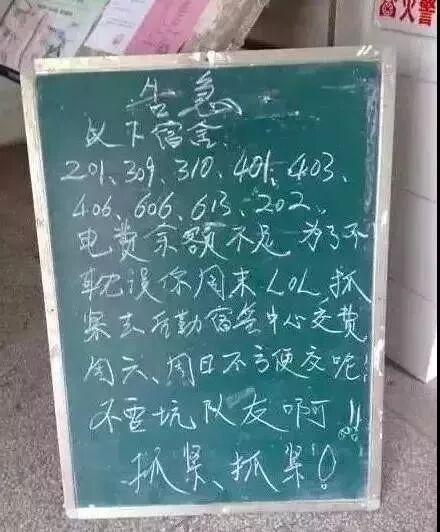 火警
告急
以下宿舍:
201、309、310、401、403、
406、606、613、202、
电费余额不足 为了不
耽误你周末LOL,抓
紧去后勤宿管中心交费
周六、周日不方便交呢!
不要坑队友啊!!
抓紧、抓紧!